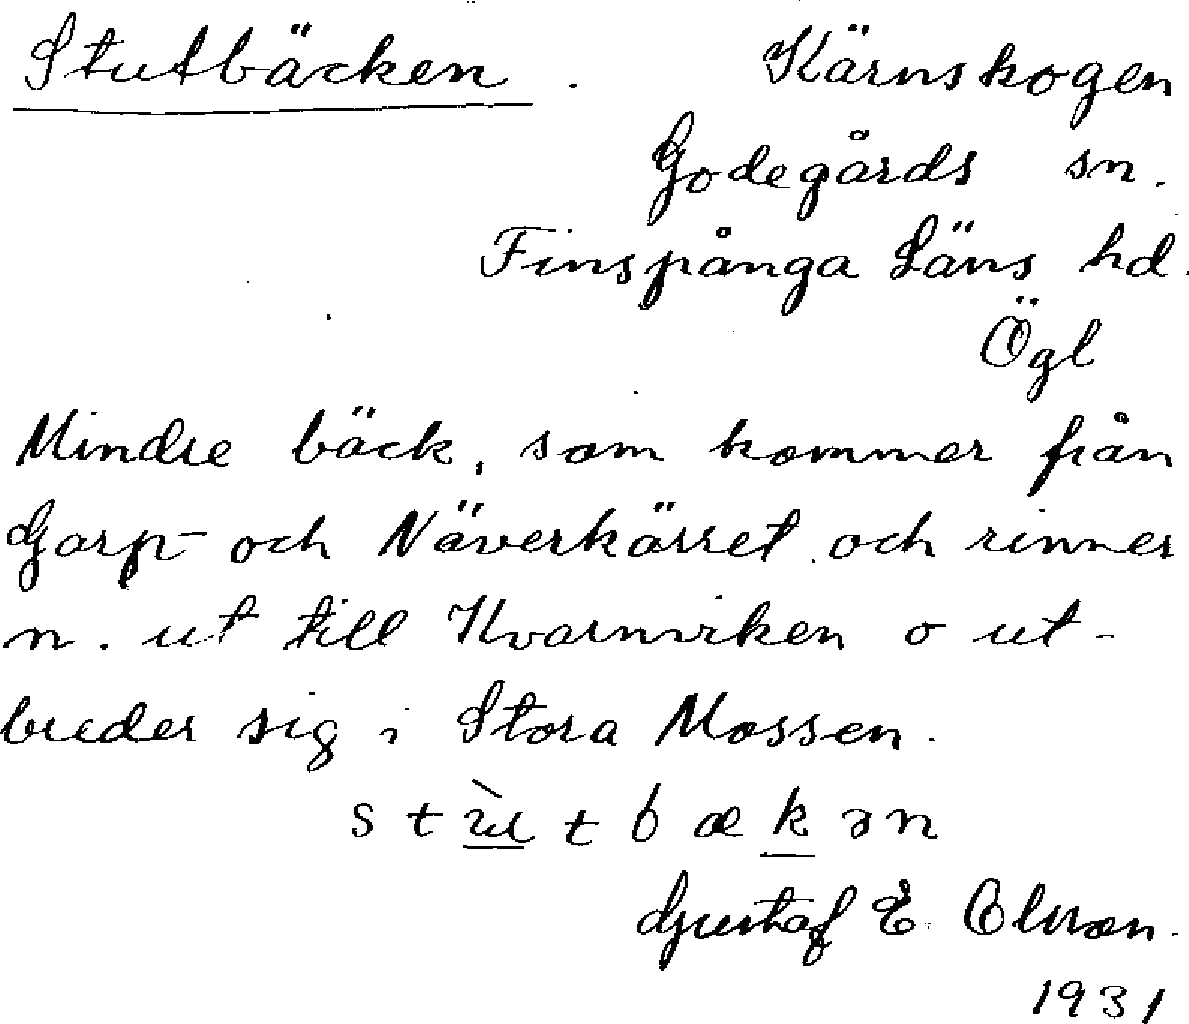 Stutbäcken. Kärnskogen
Godegårds sn.
Finspånga Läns hd.
Ögl
Mindre bäck, som kommer från
Garp- och Näverkärret och rinner
n. ut till Kvarnviken o ut-
breder sig i Stora Mossen.
stùtbækən
Gustaf E. Olsson.
1931